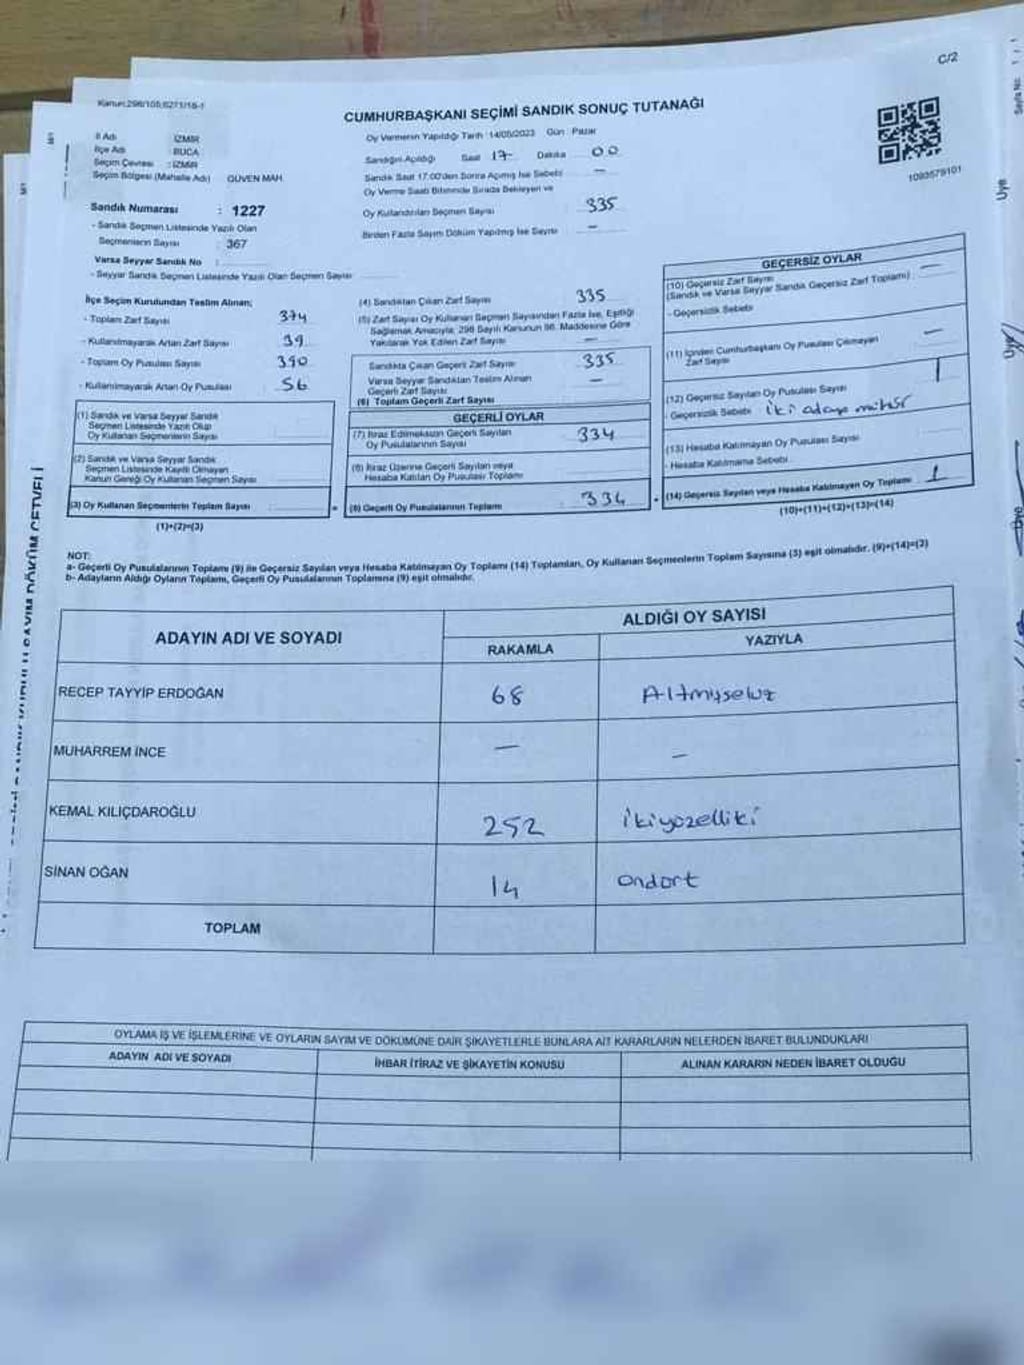 C/2
Kanun:298/105,6271/16-1
CUMHURBAŞKANI SEÇİMİ SANDIK SONUÇ TUTANAĞI
İl Adı İZMİR
İlçe Adı BUCA
Seçim Çevresi : İZMİR
Seçim Bölgesi (Mahalle Adı) GÜVEN MAH.
Sandık Numarası : 1227
- Sandık Seçmen Listesinde Yazılı Olan
Seçmenlerin Sayısı : 367
Varsa Seyyar Sandık No :
- Seyyar Sandık Seçmen Listesinde Yazılı Olan Seçmen Sayısı
Oy Vermenin Yapıldığı Tarih : 14/05/2023 Gün : Pazar
Sandığın Açıldığı Saat 17- Dakika 00
Sandık Saat 17.00'den Sonra Açılmış İse Sebebi –
Oy Verme Saati Bitiminde Sırada Bekleyen ve
Oy Kullandırılan Seçmen Sayısı 335
Birden Fazla Sayım Döküm Yapılmış İse Sayısı –
1093579101
İlçe Seçim Kurulundan Teslim Alınan;
- Toplam Zarf Sayısı 374
- Kullanılmayarak Artan Zarf Sayısı 39
- Toplam Oy Pusulası Sayısı 390
- Kullanılmayarak Artan Oy Pusulası 56
(1) Sandık ve Varsa Seyyar Sandık
Seçmen Listesinde Yazılı Olup
Oy Kullanan Seçmenlerin Sayısı
(2) Sandık ve Varsa Seyyar Sandık
Seçmen Listesinde Kayıtlı Olmayan
Kanun Gereği Oy Kullanan Seçmen Sayısı
(3) Oy Kullanan Seçmenlerin Toplam Sayısı
(1)+(2)=(3)
(4) Sandıktan Çıkan Zarf Sayısı 335
(5) Zarf Sayısı Oy Kullanan Seçmen Sayısından Fazla İse, Eşitliği
Sağlamak Amacıyla, 298 Sayılı Kanunun 98. Maddesine Göre
Yakılarak Yok Edilen Zarf Sayısı –
Sandıkta Çıkan Geçerli Zarf Sayısı 335
Varsa Seyyar Sandıktan Teslim Alınan
Geçerli Zarf Sayısı –
(6) Toplam Geçerli Zarf Sayısı
GEÇERLİ OYLAR
(7) İtiraz Edilmeksizin Geçerli Sayılan
Oy Pusulalarının Sayısı 334
(8) İtiraz Üzerine Geçerli Sayılan veya
Hesaba Katılan Oy Pusulası Toplamı
(9) Geçerli Oy Pusulalarının Toplamı 334
GEÇERSİZ OYLAR
(10) Geçersiz Zarf Sayısı –
(Sandık ve Varsa Seyyar Sandık Geçersiz Zarf Toplamı)
- Geçersizlik Sebebi
(11) İçinden Cumhurbaşkanı Oy Pusulası Çıkmayan
Zarf Sayısı –
(12) Geçersiz Sayılan Oy Pusulası Sayısı 1
- Geçersizlik Sebebi iki adaya mühür
(13) Hesaba Katılmayan Oy Pusulası Sayısı
- Hesaba Katılmama Sebebi
(14) Geçersiz Sayılan veya Hesaba Katılmayan Oy Toplamı 1
(10)+(11)+(12)+(13)=(14)
NOT:
a- Geçerli Oy Pusulalarının Toplamı (9) ile Geçersiz Sayılan veya Hesaba Katılmayan Oy Toplamı (14) Toplamları, Oy Kullanan Seçmenlerin Toplam Sayısına (3) eşit olmalıdır. (9)+(14)=(3)
b- Adayların Aldığı Oyların Toplamı, Geçerli Oy Pusulalarının Toplamına (9) eşit olmalıdır.
ADAYIN ADI VE SOYADI ALDIĞI OY SAYISI
RAKAMLA YAZIYLA
RECEP TAYYİP ERDOĞAN 68 Altmışsekiz
MUHARREM İNCE – –
KEMAL KILIÇDAROĞLU 252 ikiyüzelliiki
SİNAN OĞAN 14 ondört
TOPLAM
OYLAMA İŞ VE İŞLEMLERİNE VE OYLARIN SAYIM VE DÖKÜMÜNE DAİR ŞİKAYETLERLE BUNLARA AİT KARARLARIN NELERDEN İBARET BULUNDUKLARI
ADAYIN ADI VE SOYADI İHBAR İTİRAZ VE ŞİKAYETİN KONUSU ALINAN KARARIN NEDEN İBARET OLDUĞU
Sayfa No:
Üye
Üye
Üye